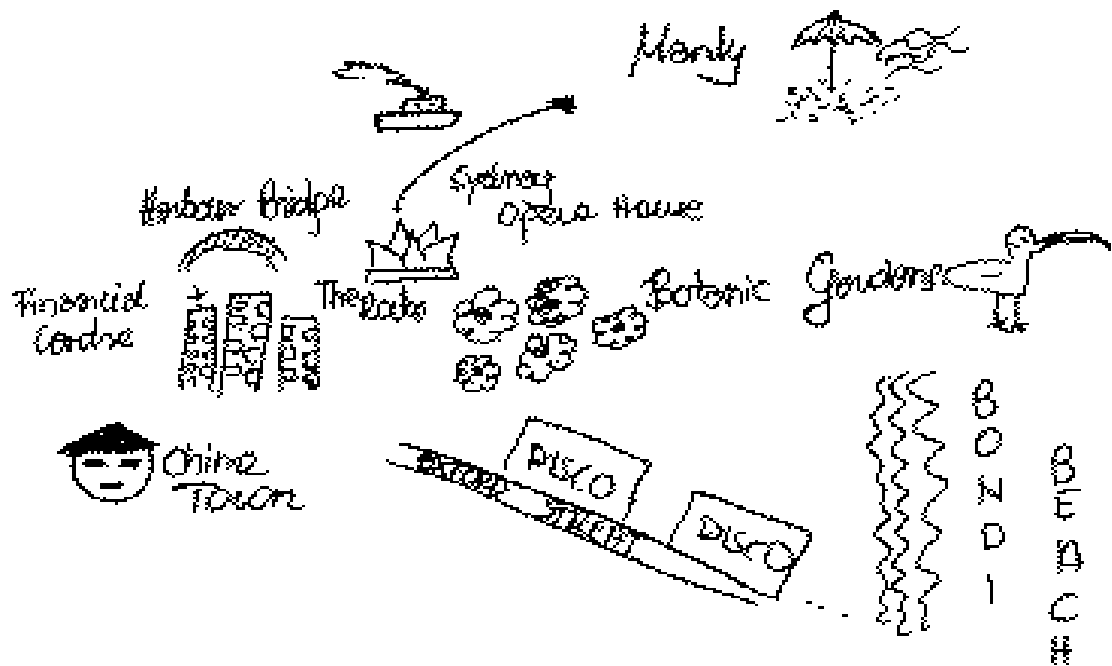 Manly
Sydney
Opera House
Harbour Bridge
The Rocks
Financial
Centre
Botonic Gardens
China
Town
OXFORD
STREET
DISCO
DISCO
BONDI
BEACH